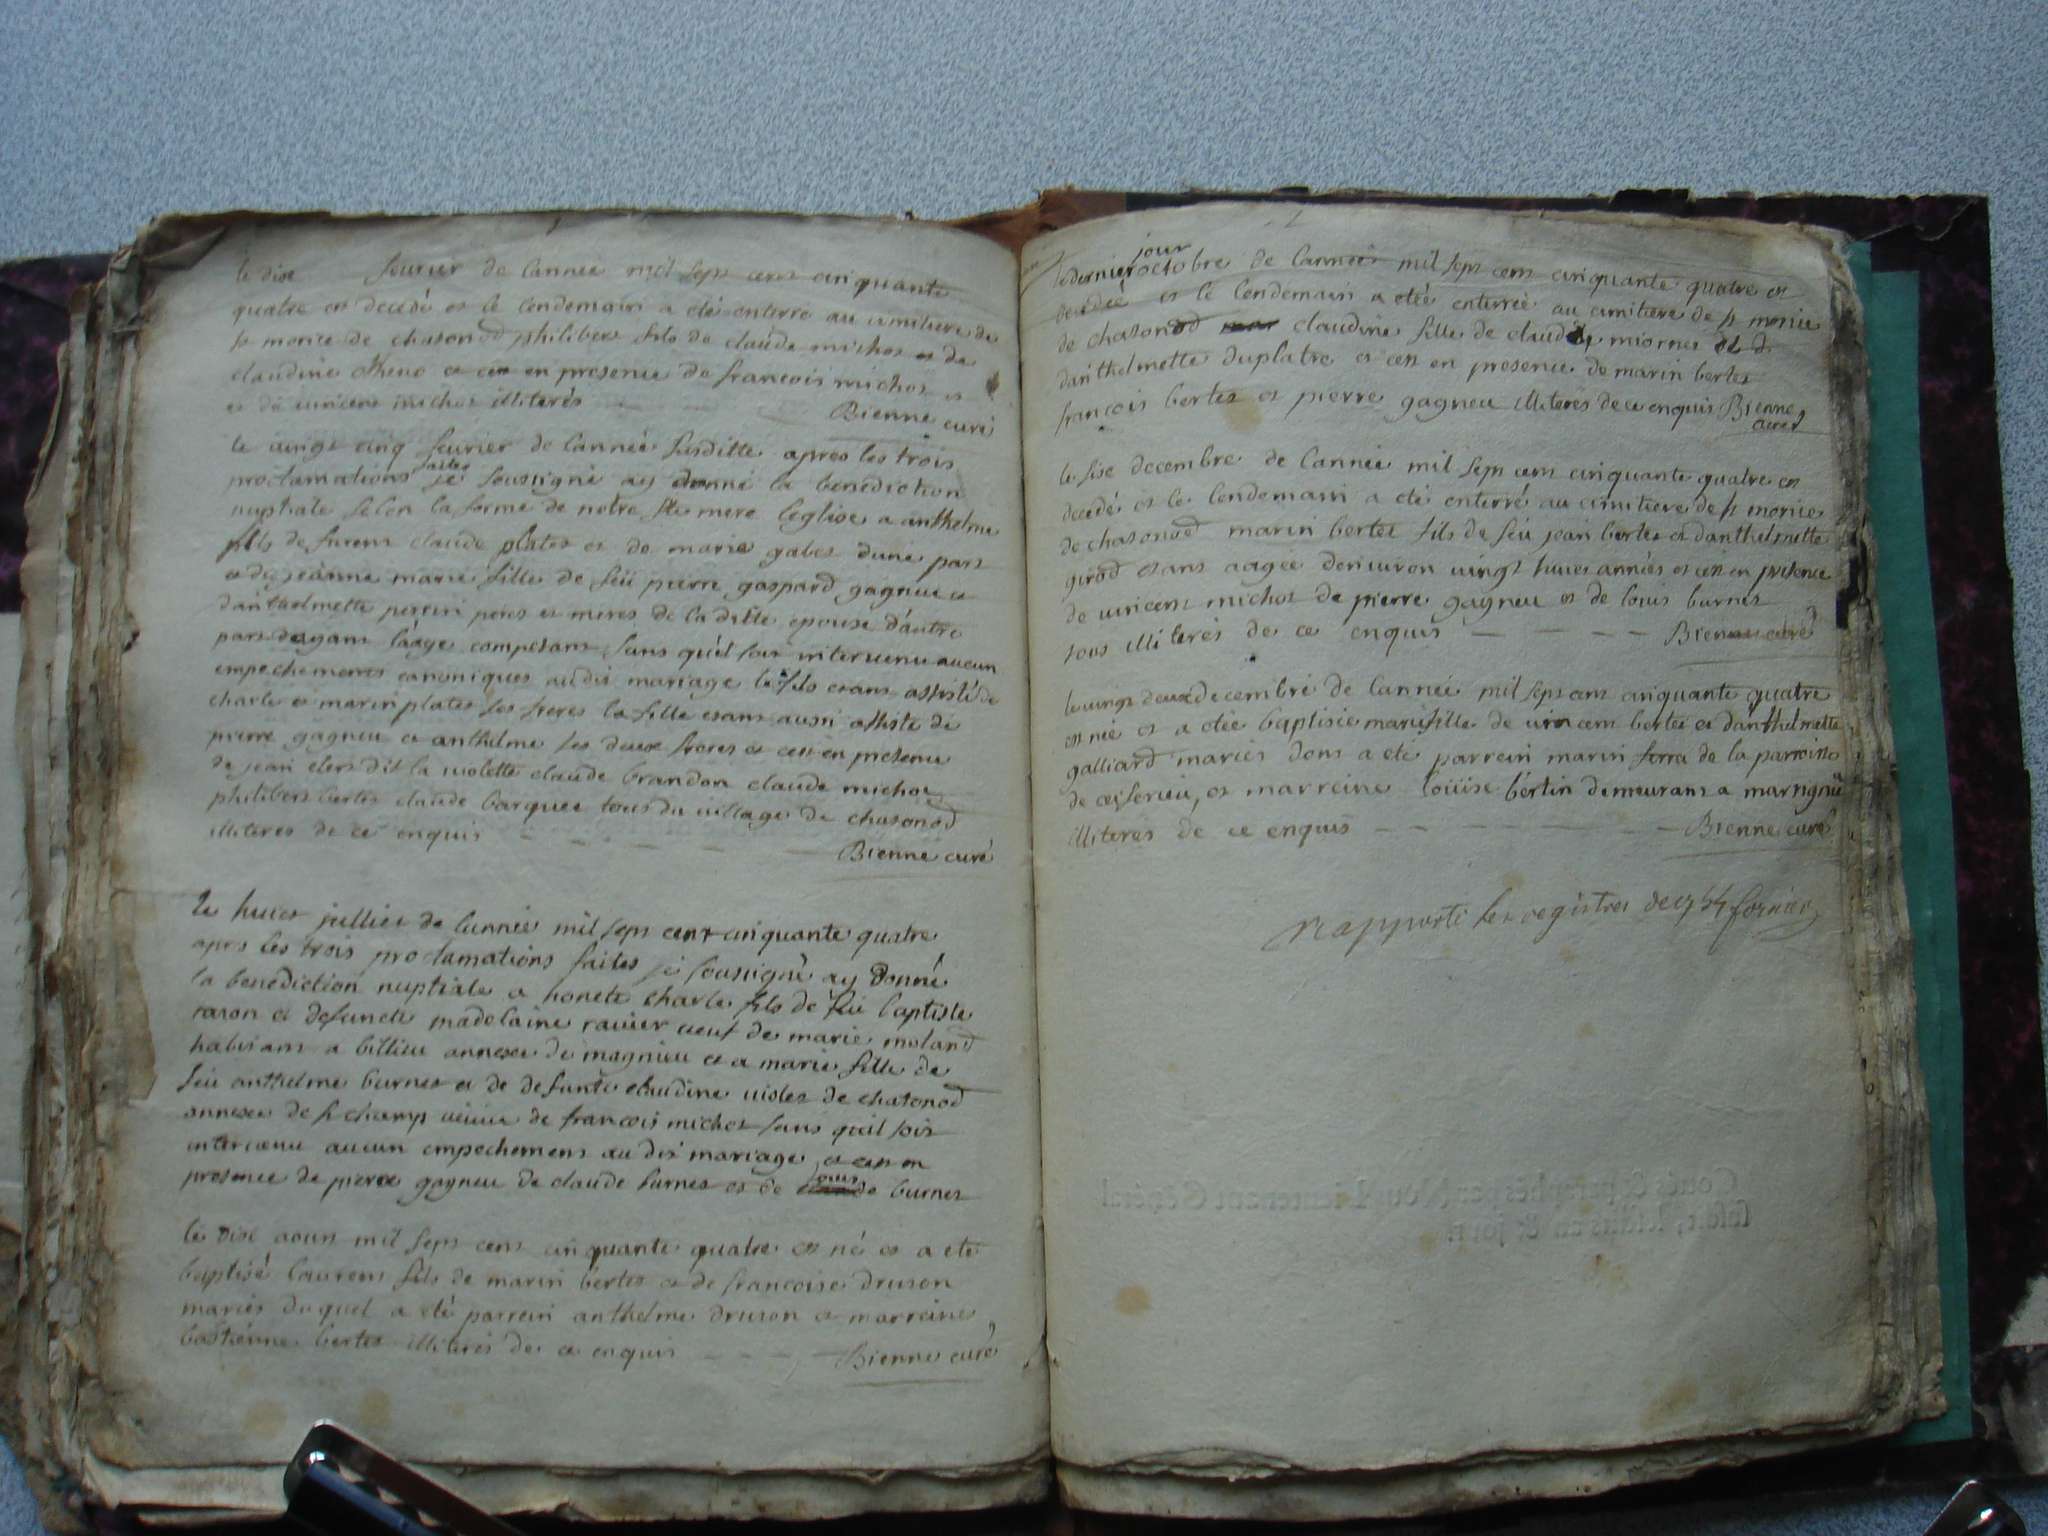 le dixe feurier de lannée mil sept cent cinquante
quatre est decedé et le lendemain a eté enterré au cimitiere de
st morice de chasonod philibert fils de claude michot et de
claudine et cest en presence de francois michot
et de vincent michot illiterés Bienne curé
le vingt cinq feurier de lannée susditte apres les trois
proclamations faites je soussigné ay donné la benediction
nuptiale selon la forme de notre ste mere leglise a anthelme
fils de claude platet et de marie gabet dune part
et de jeanne marie fille de feü pierre gaspard gagneu et
danthelmette perrin peres et meres de la ditte epouse dautre
part ayant laage competant sans quil soit intervenu aucun
empechements canoniques audit mariage le fils etant assisté de
charle et marin platet ses freres la fille etant aussi assisté de
pierre gagneu et anthelme ses deux freres et cest en presence
de jean dit la violette claude brandon claude michot
philibert bertet claude barquet tous du village de chasonod
illiteres de ce enquis Bienne curé
le huict julliet de lannée mil sept cent cinquante quatre
aprs les trois proclamations faites je soussigné ay donné
la benediction nuptiale a honete charle fils de feu baptiste
rason et defuncte madelaine ravier veuf de marie moland
habitant a billieu annexe de magnieu et a marie fille de
feu anthelme burnet et de defunte claudine violet de chatonod
annexe de st champ veuve de francois michot sans quil soit
intervenu aucun empechement au dit mariage et cest en
presence de pierre gagneu de claude burnet et de louis burnet
le dixe aoust mil sept cent cinquante quatre est né et a eté
baptisé laurent fils de marin bertet et de francoise druson
mariés duquel a eté parrein anthelme druson et marreine
bastienne bertet illiterés de ce enquis Bienne curé
le dernier jour octobre de lannée mil sept cent cinquante quatre est
decedée et le lendemain a etée enterrée au cimitiere de st morice
de chasonod claudine fille de claude miorne et d
danthelmette duplatre et cest en presence de marin bertet
francois bertet et pierre gagneu illiterés de ce enquis Bienne
curé
le sixe decembre de lannée mil sept cent cinquante quatre est
decedé et le lendemain a eté enterré au cimitiere de st morice
de chasonod marin bertet fils de feu jean bertet et danthelmette
girod etant aagée denviron vingt huict années et cest en presence
de vincent michot de pierre gagneu et de louis burnet
tous illiterés de ce enquis Bienne curé
le vingt deux decembre de lannée mil sept cent cinquante quatre
est née et a etée baptisée marie fille de vincent bertet et danthelmette
galliard mariés dont a eté parrein marin ferra de la parroisse
de ceiserieu, et marreine loüise bertin demeurant a marrignieu
illiterés de ce enquis Bienne curé
rapporté les registres de 1754 fornier